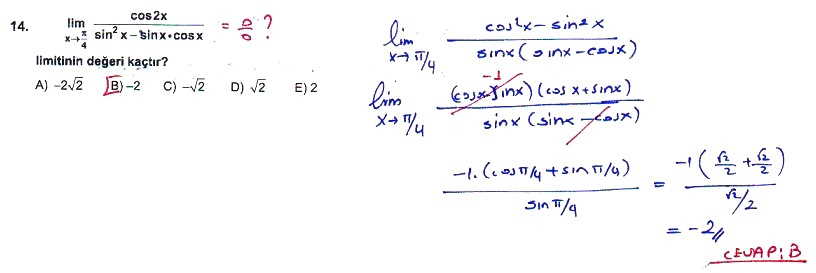 14. lim x→π/4 cos2x / sin²x − sinx•cosx = 0/0 ?
limitinin değeri kaçtır?
A) −2√2 B) −2 C) −√2 D) √2 E) 2
lim x→π/4 cos²x − sin²x / sinx (sinx − cosx)
lim x→π/4 (cosx − sinx) (cosx + sinx) / sinx (sinx − cosx) −1
−1. (cosπ/4 + sinπ/4) / sinπ/4 = −1 (√2/2 + √2/2) / √2/2
= −2//
CEVAP: B